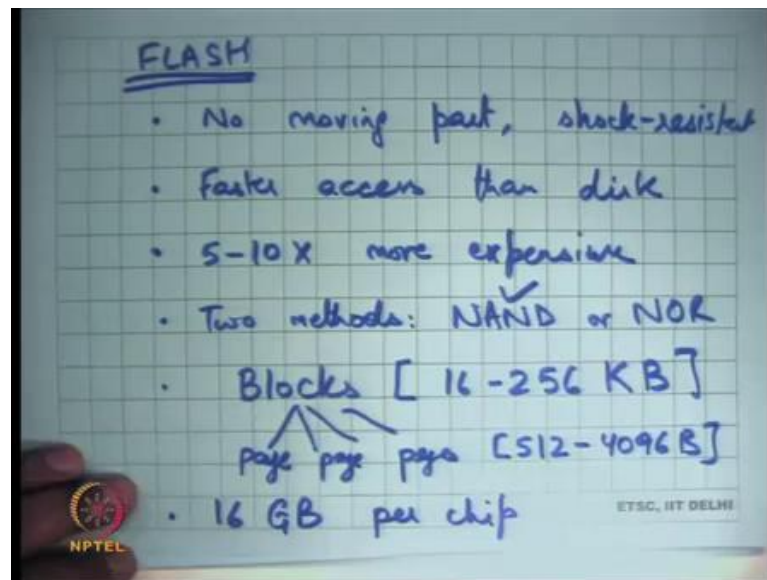 FLASH
• No moving part, shock-resistant
• Faster access than disk
• 5-10 X more expensive
• Two methods: NAND or NOR
• Blocks [16-256 KB]
page page page [512-4096 B]
• 16 GB per chip
ETSC, IIT DELHI
NPTEL